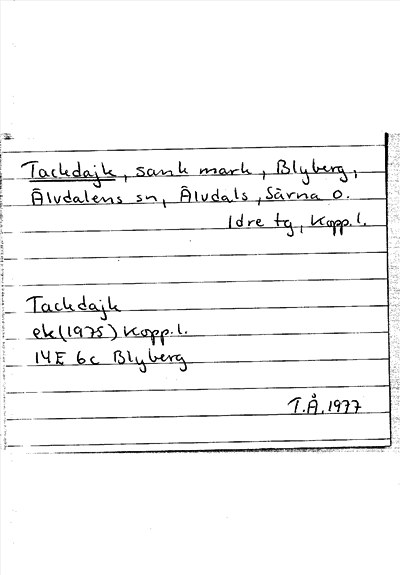 Tackdajk, sank mark, Blyberg,
Älvdalens sn, Älvdals, Särna o.
Idre tg, Kopp.l.
Tackdajk
ek (1975) Kopp.l.
14E 6c Blyberg
T.Å. 1977